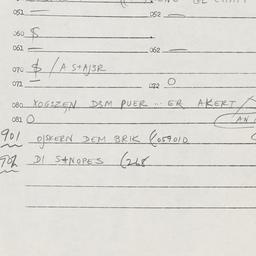 051 — 052 —
060 $
061 — 062 —
070 $ / A S+AJ3R
071 — 072 O
080 XOGSZEN D3M PUER ... ER AKERT /
081 O
901 OJSKERN DEM BRIK (059010
902 DI S+NOPES (268